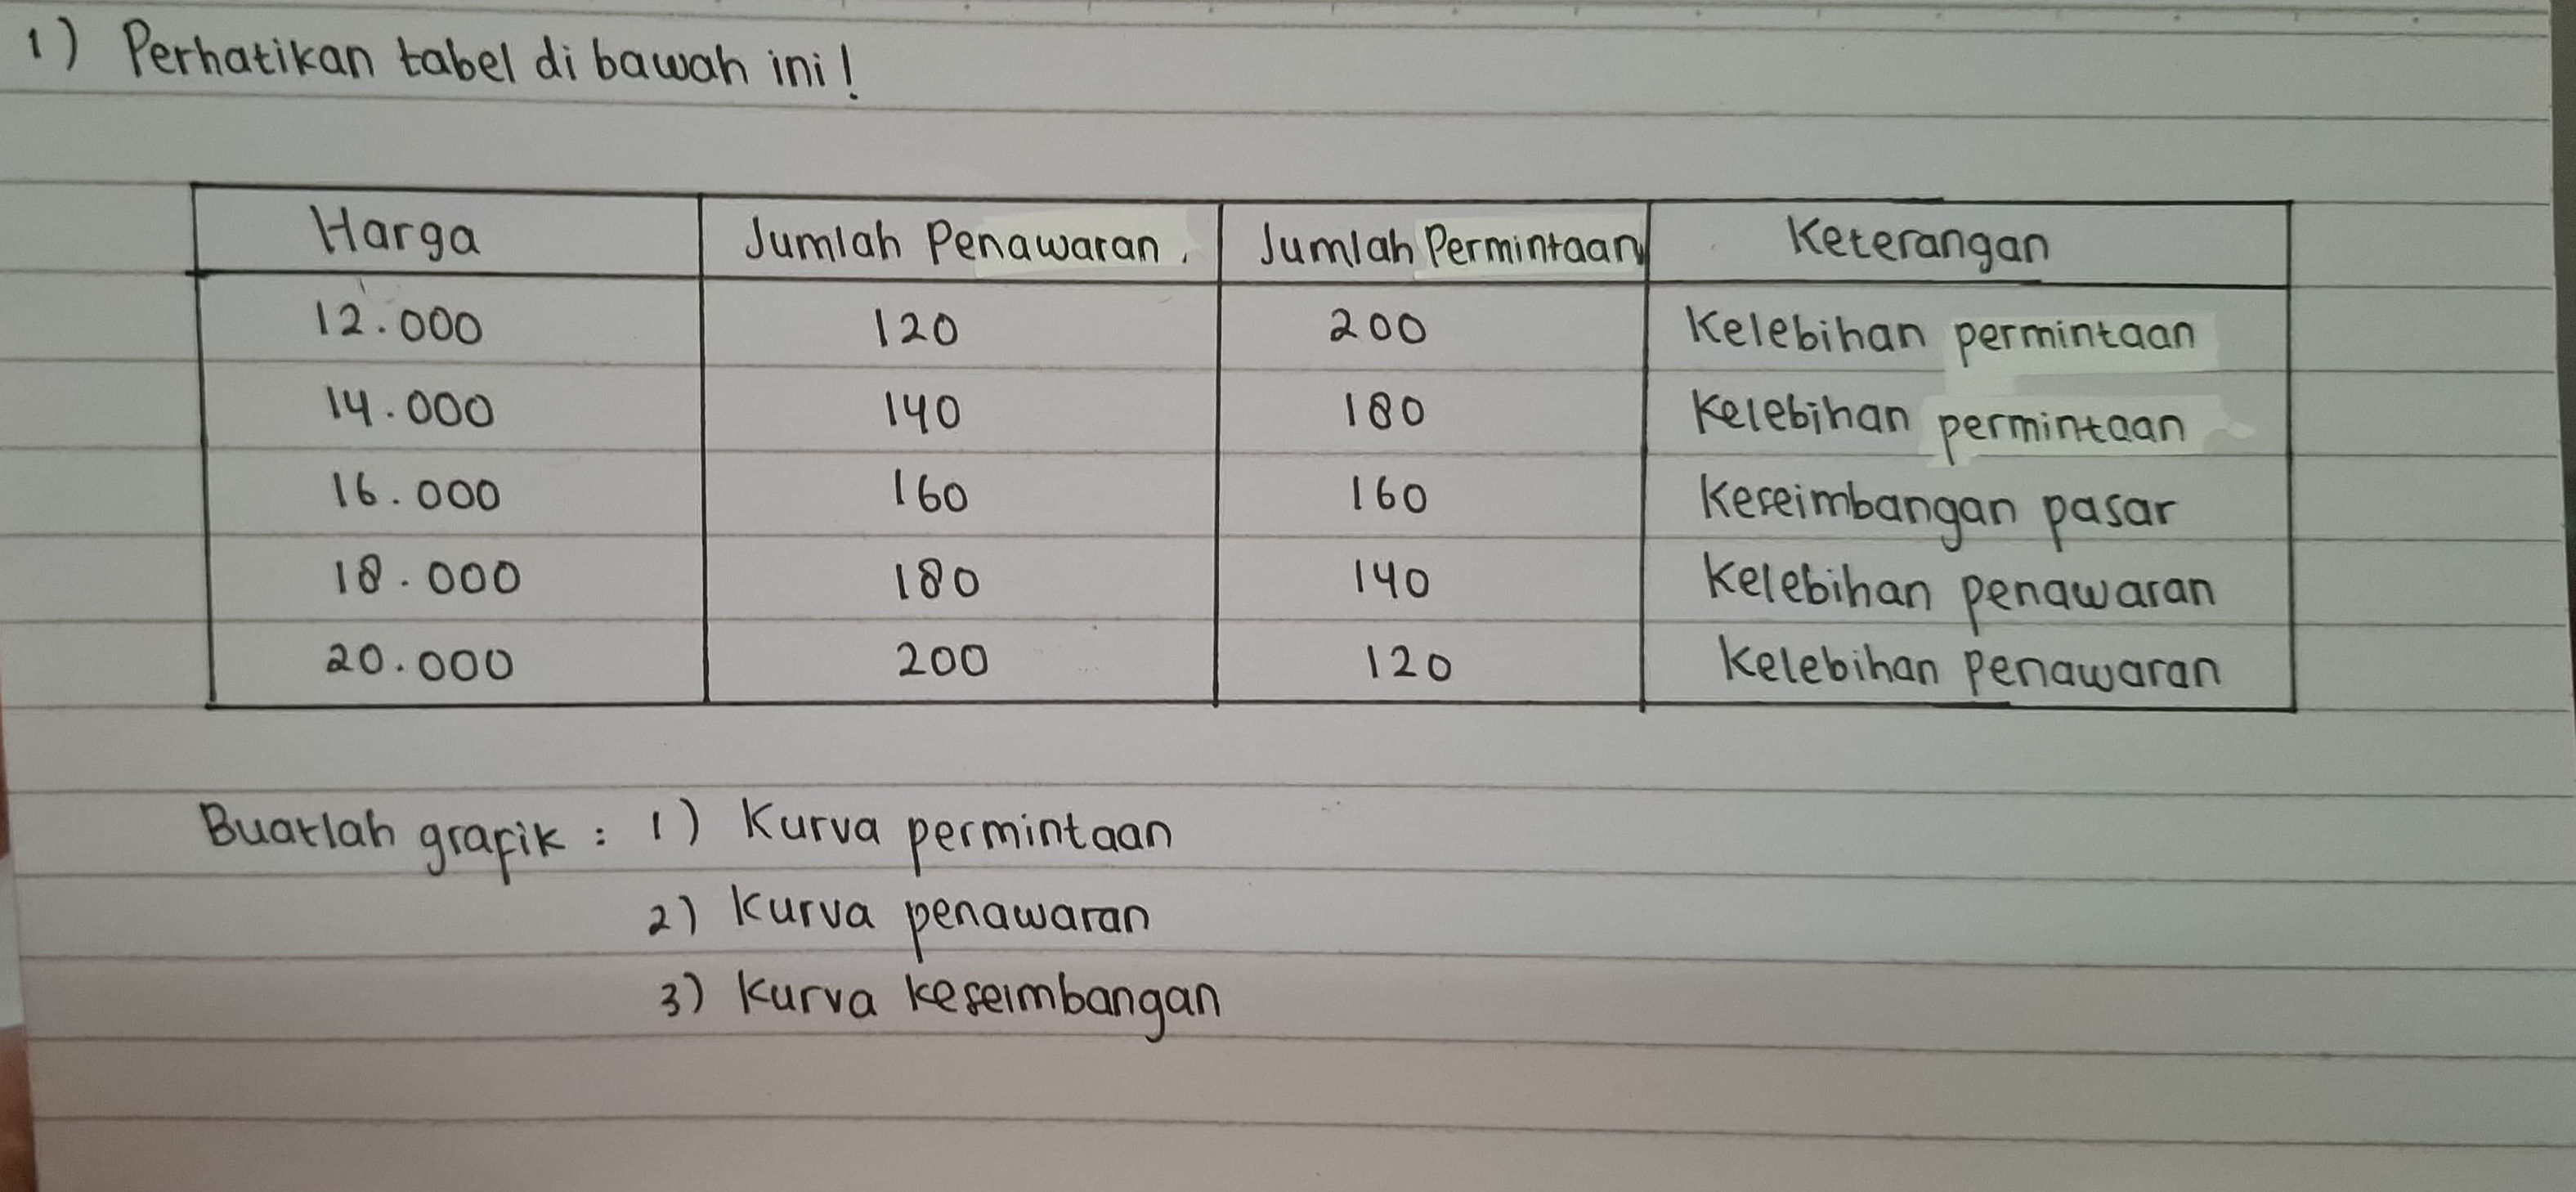 1) Perhatikan tabel di bawah ini!
Harga Jumlah Penawaran. Jumlah Permintaan Keterangan
12.000 120 200 Kelebihan permintaan
14.000 140 180 Kelebihan permintaan
16.000 160 160 Keseimbangan pasar
18.000 180 140 Kelebihan penawaran
20.000 200 120 Kelebihan Penawaran
Buatlah grafik : 1) Kurva permintaan
2) Kurva penawaran
3) Kurva keseimbangan